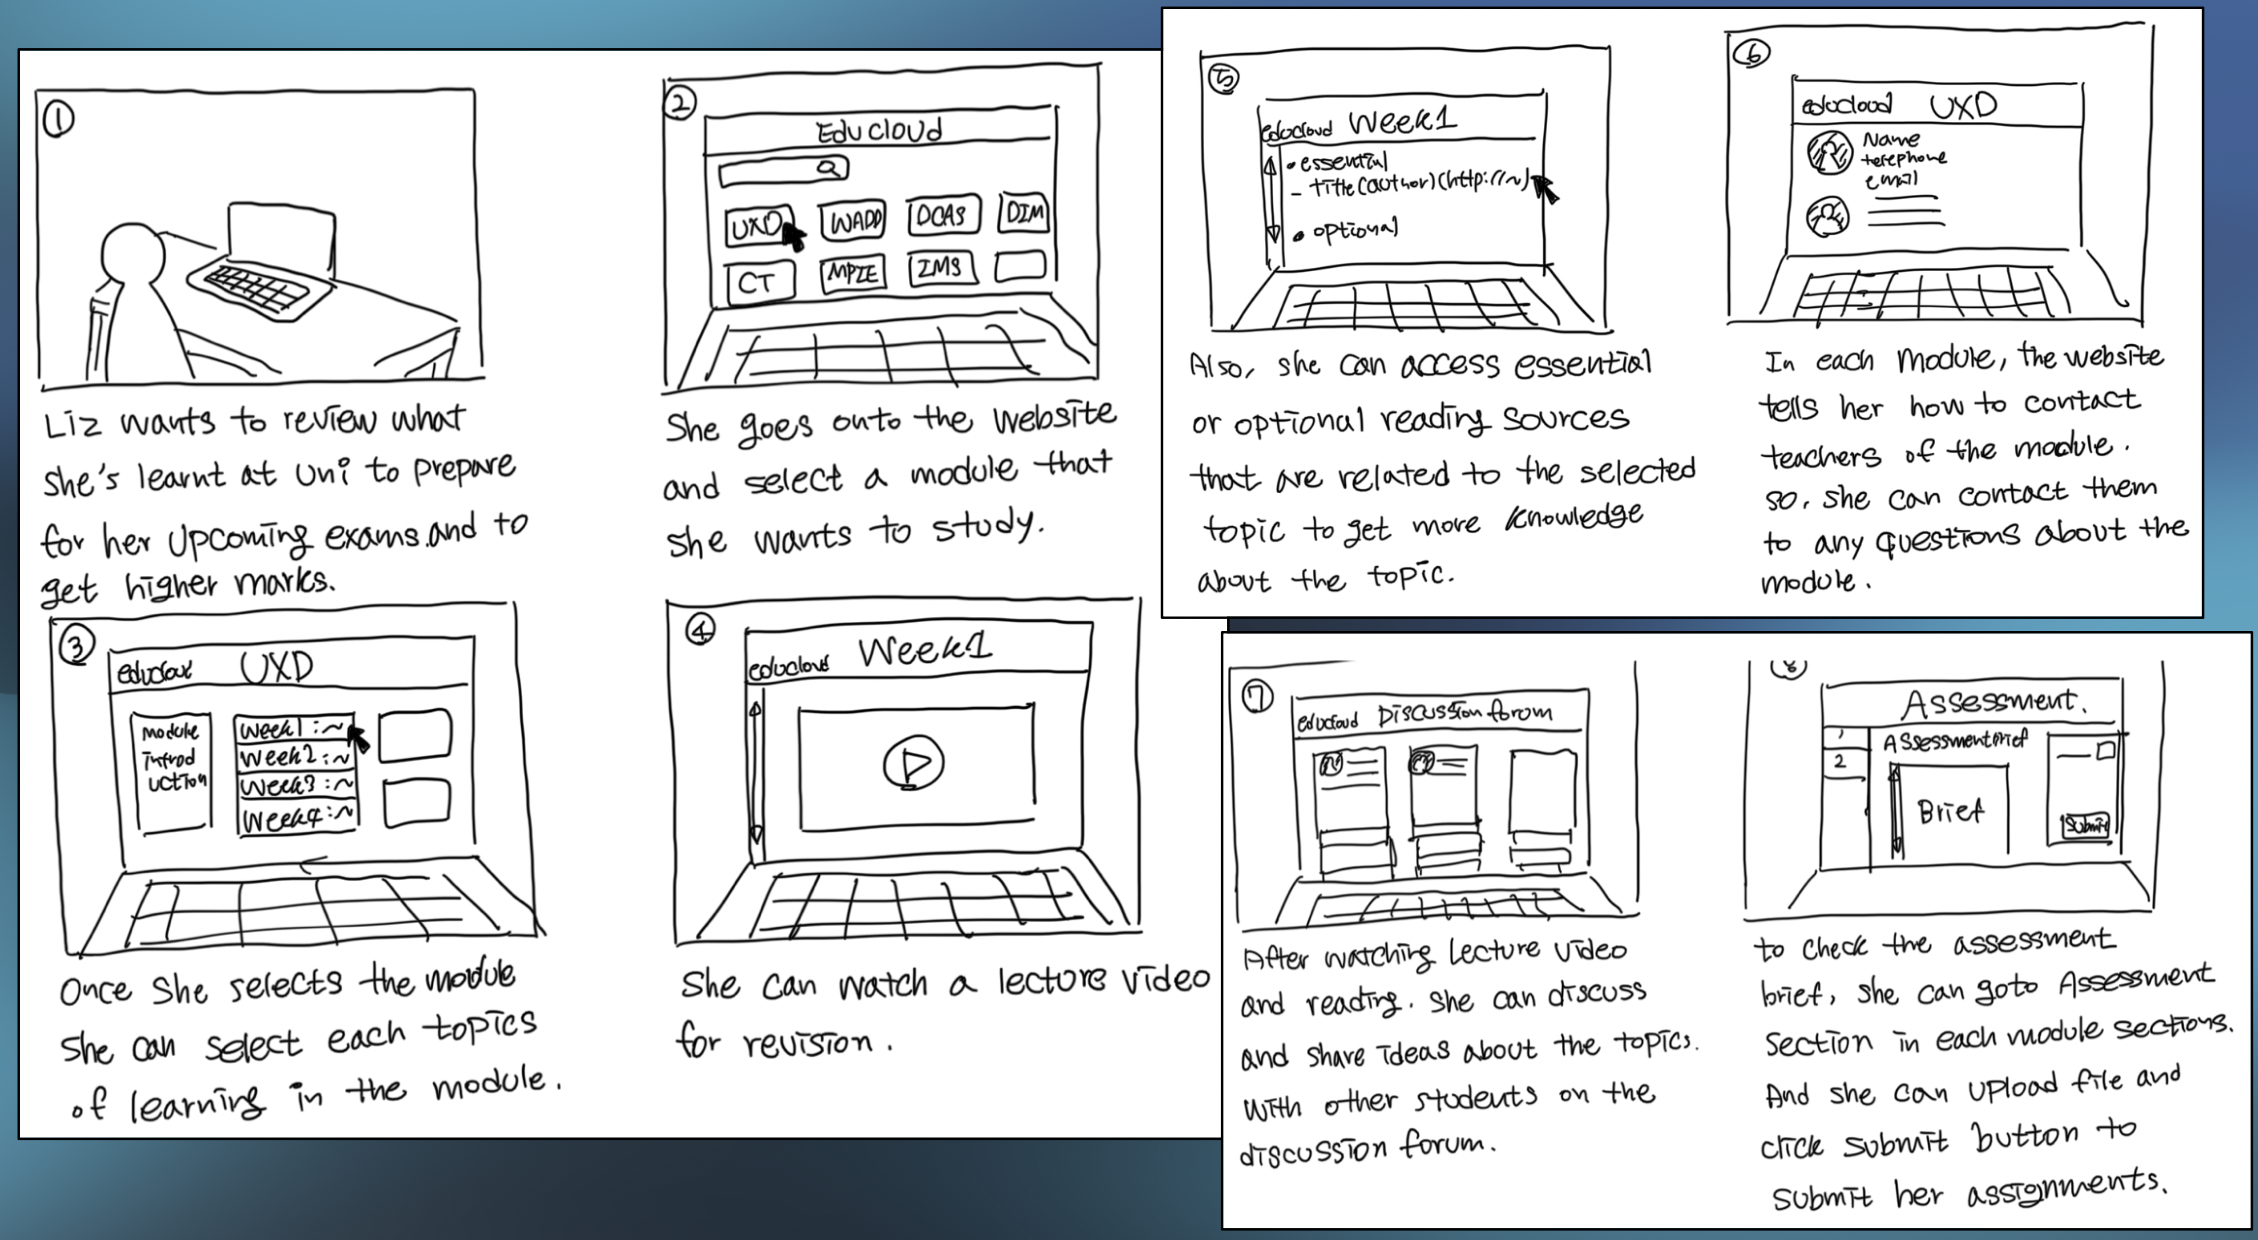 1
Liz wants to review what
she's learnt at uni to prepare
for her upcoming exams.and to
get higher marks.
2
Educloud
UXD WADD DCAS DIM
CT MPIE IMS
She goes onto the website
and select a module that
she wants to study.
3
educloud UXD
module
introd
uction
week1 :~
week2 :~
week3 :~
week4 :~
Once she selects the module
she can select each topics
of learning in the module.
4
educloud Week1
She can watch a lecture video
for revision.
5
educloud Week1
• essential
- title(author)(http://~)
• optional
Also, she can access essential
or optional reading sources
that are related to the selected
topic to get more knowledge
about the topic.
6
educloud UXD
Name
terephone
email
In each module, the website
tells her how to contact
teachers of the module.
so, she can contact them
to any questions about the
module.
7
educloud Discussion forom
After watching lecture video
and reading. she can discuss
and share ideas about the topics.
with other students on the
discussion forum.
8
Assessment.
1
2
Assessment brief
Brief
Submit
to check the assessment
brief, she can goto Assessment
section in each module sections.
And she can upload file and
click submit button to
submit her assignments.